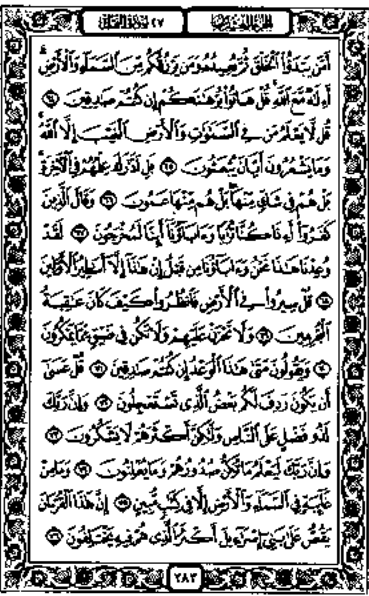 الجزء العشرون ٢٧ سورة النمل
أَمَّن يَبْدَؤُا۟ الْخَلْقَ ثُمَّ يُعِيدُهُ وَمَن يَرْزُقُكُم مِّنَ السَّمَآءِ وَالْأَرْضِ
أَءِلَٰهٌ مَّعَ اللَّهِ قُلْ هَاتُوا۟ بُرْهَٰنَكُمْ إِن كُنتُمْ صَٰدِقِينَ ٦٤
قُل لَّا يَعْلَمُ مَن فِى السَّمَٰوَٰتِ وَالْأَرْضِ الْغَيْبَ إِلَّا اللَّهُ
وَمَا يَشْعُرُونَ أَيَّانَ يُبْعَثُونَ ٦٥ بَلِ ادَّٰرَكَ عِلْمُهُمْ فِى الْءَاخِرَةِ
بَلْ هُمْ فِى شَكٍّ مِّنْهَا بَلْ هُم مِّنْهَا عَمُونَ ٦٦ وَقَالَ الَّذِينَ
كَفَرُوٓا۟ أَءِذَا كُنَّا تُرَٰبًا وَءَابَآؤُنَآ أَئِنَّا لَمُخْرَجُونَ ٦٧ لَقَدْ
وُعِدْنَا هَٰذَا نَحْنُ وَءَابَآؤُنَا مِن قَبْلُ إِنْ هَٰذَآ إِلَّآ أَسَٰطِيرُ الْأَوَّلِينَ
٦٨ قُلْ سِيرُوا۟ فِى الْأَرْضِ فَانظُرُوا۟ كَيْفَ كَانَ عَٰقِبَةُ
الْمُجْرِمِينَ ٦٩ وَلَا تَحْزَنْ عَلَيْهِمْ وَلَا تَكُن فِى ضَيْقٍ مِّمَّا يَمْكُرُونَ
٧٠ وَيَقُولُونَ مَتَىٰ هَٰذَا الْوَعْدُ إِن كُنتُمْ صَٰدِقِينَ ٧١ قُلْ عَسَىٰٓ
أَن يَكُونَ رَدِفَ لَكُم بَعْضُ الَّذِى تَسْتَعْجِلُونَ ٧٢ وَإِنَّ رَبَّكَ
لَذُو فَضْلٍ عَلَى النَّاسِ وَلَٰكِنَّ أَكْثَرَهُمْ لَا يَشْكُرُونَ ٧٣
وَإِنَّ رَبَّكَ لَيَعْلَمُ مَا تُكِنُّ صُدُورُهُمْ وَمَا يُعْلِنُونَ ٧٤ وَمَا مِنْ
غَآئِبَةٍ فِى السَّمَآءِ وَالْأَرْضِ إِلَّا فِى كِتَٰبٍ مُّبِينٍ ٧٥ إِنَّ هَٰذَا الْقُرْءَانَ
يَقُصُّ عَلَىٰ بَنِىٓ إِسْرَٰٓءِيلَ أَكْثَرَ الَّذِى هُمْ فِيهِ يَخْتَلِفُونَ ٧٦
٣٨٣